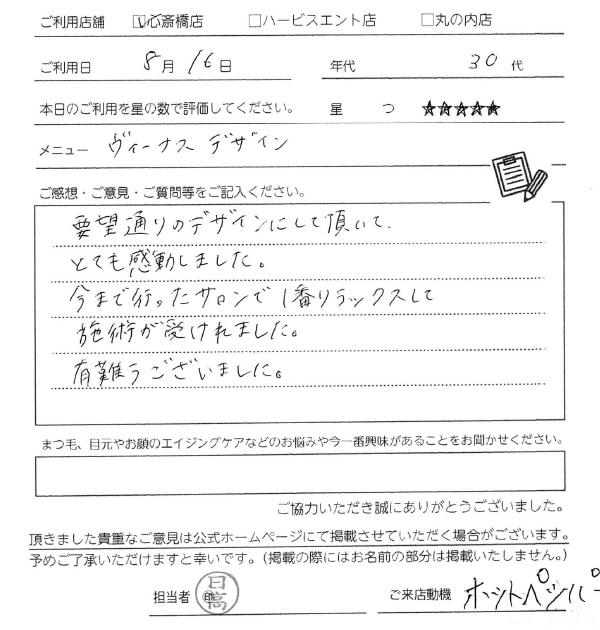 ご利用店舗 ☑心斎橋店 □ハービスエント店 □丸の内店
ご利用日 8月16日 年代 30代
本日のご利用を星の数で評価してください。 星 つ ★★★★★
メニュー ヴィーナス デザイン
ご感想・ご意見・ご質問等をご記入ください。
要望通りのデザインにして頂いて、
とても感動しました。
今まで行ったサロンで1番リラックスして
施術が受けれました。
有難うございました。
まつ毛、目元やお顔のエイジングケアなどのお悩みや今一番興味があることをお聞かせください。
ご協力いただき誠にありがとうございました。
頂きました貴重なご意見は公式ホームページにて掲載させていただく場合がございます。
予めご了承いただけますと幸いです。(掲載の際にはお名前の部分は掲載いたしません。)
担当者 印 日高 ご来店動機 ホットペッパー